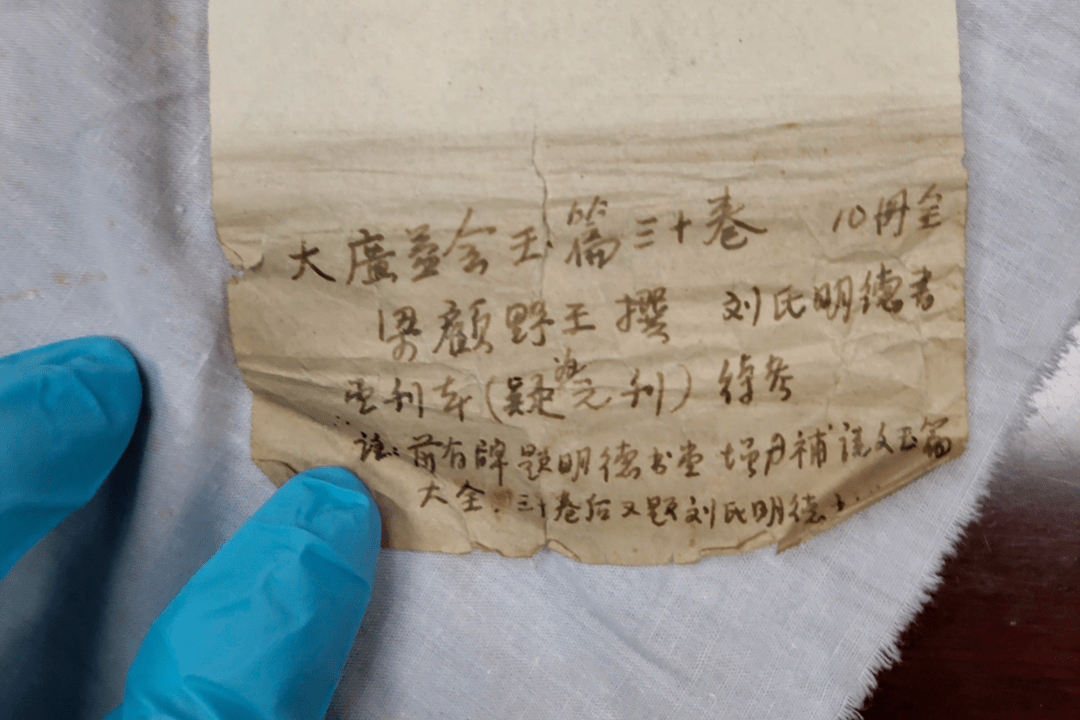 大廣益会玉篇三十卷 10冊全
梁顾野王撰 刘氏明德书
堂刊本(疑为元刊) 待考
註:前有牌题明德书堂增月補说文玉篇
大全.三十卷后又题刘氏明德